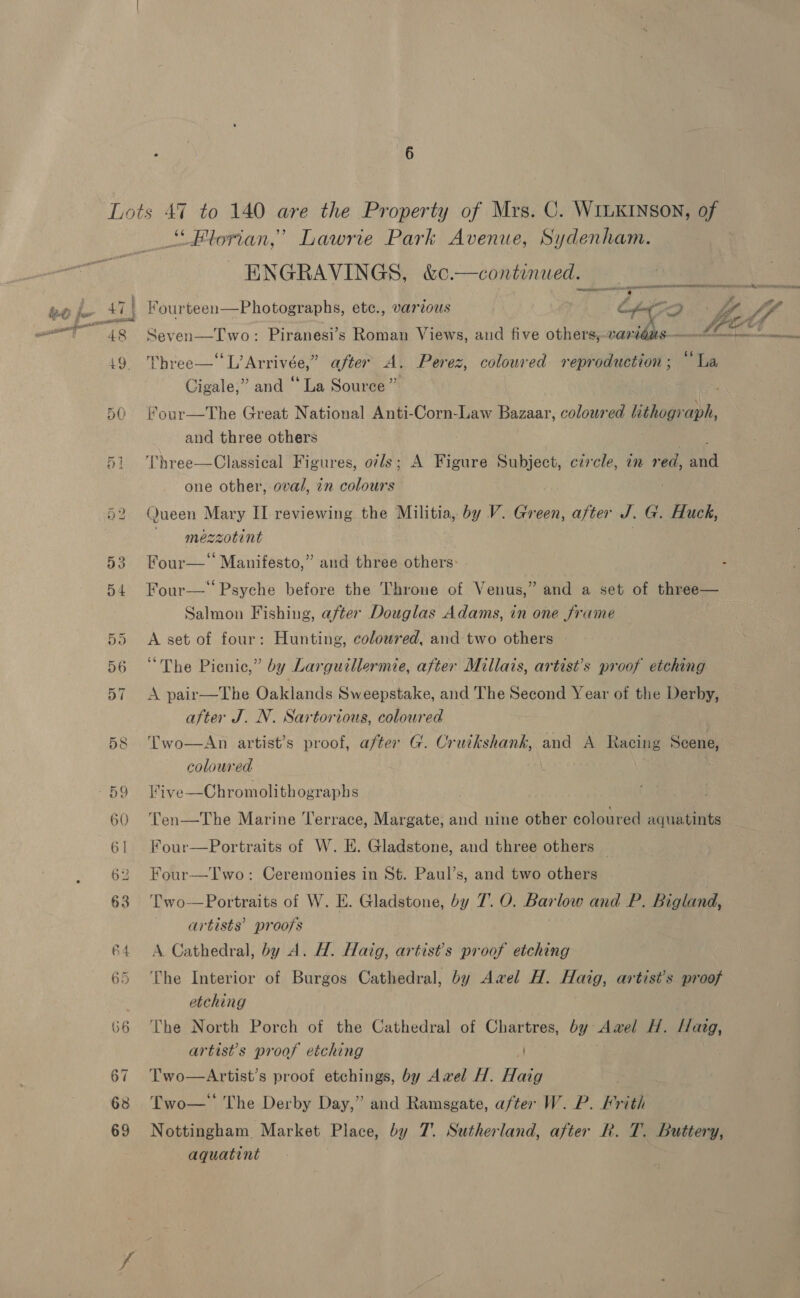 6
Lots 47 to 140 are the Property of Mrs. C. WILKINSON, of
“Florian,” Lawrie Park Avenue, Sydenham.
ENGRAVINGS, &c.—continued.
47 Fourteen—Photographs, etc., various
48 Seven—Two: Piranesi’s Roman Views, and five others, various
49. Three—“L’Arrivée,” after A. Perez, coloured reproduction; “La
Cigale,” and “La Source”
50 Four—The Great National Anti-Corn-Law Bazaar, coloured lithograph,
and three others
51 Three—Classical Figures, oils; A Figure Subject, circle, in red, and
one other, oval, in colours
52 Queen Mary II reviewing the Militia, by V. Green, after J. G. Huck,
mezzotint
53 Four—“Manifesto,” and three others
54 Four—“Psyche before the Throne of Venus,” and a set of three—
Salmon Fishing, after Douglas Adams, in one frame
55 A set of four: Hunting, coloured, and two others
56 “The Picnic,” by Larguillermie, after Millais, artist’s proof etching
57 A pair—The Oaklands Sweepstake, and The Second Year of the Derby,
after J. N. Sartorious, coloured
58 Two—An artist’s proof, after G. Cruikshank, and A Racing Scene,
coloured
59 Five—Chromolithographs
60 Ten—The Marine Terrace, Margate, and nine other coloured aquatints
61 Four—Portraits of W. E. Gladstone, and three others
62 Four—Two: Ceremonies in St. Paul’s, and two others
63 Two—Portraits of W. E. Gladstone, by T. O. Barlow and P. Bigland,
artists’ proofs
64 A Cathedral, by A. H. Haig, artist’s proof etching
65 The Interior of Burgos Cathedral, by Axel H. Haig, artist’s proof
etching
66 The North Porch of the Cathedral of Chartres, by Axel H. Haig,
artist’s proof etching
67 Two—Artist’s proof etchings, by Axel H. Haig
68 Two—“The Derby Day,” and Ramsgate, after W. P. Frith
69 Nottingham Market Place, by T. Sutherland, after R. T. Buttery,
aquatint